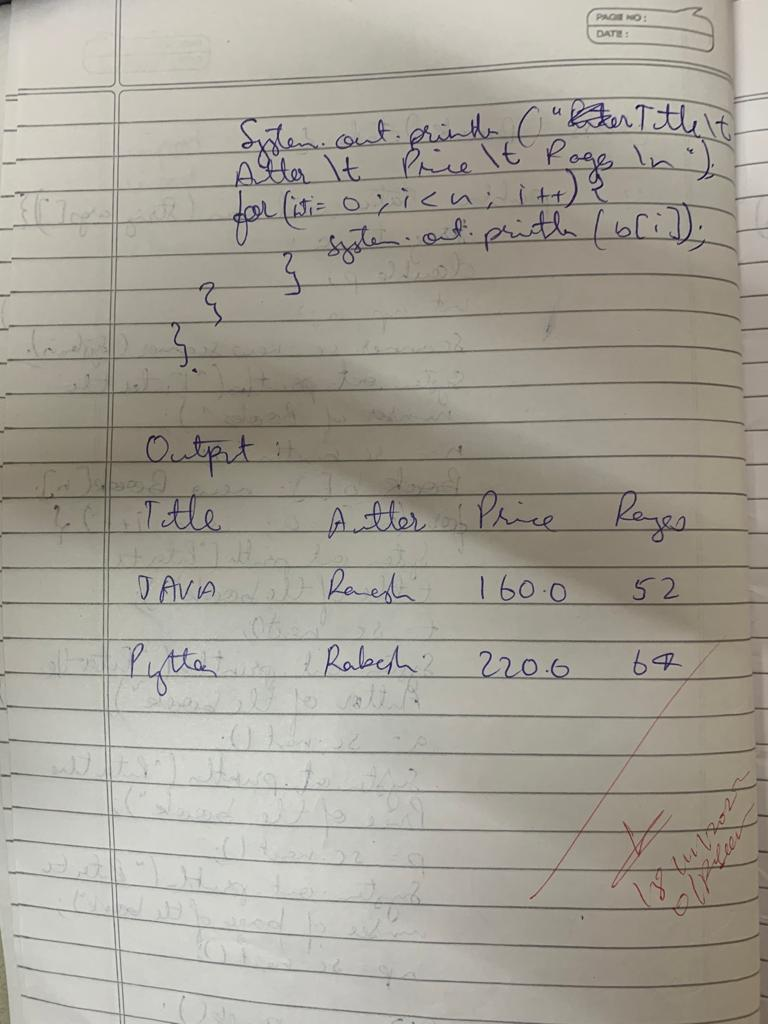 PAGE NO:
DATE:
System.out.println ("Title\t
Author \t Price \t Pages \n");
for (int i = 0 ; i < n ; i ++) {
System.out.println (b[i]);
}
}
}
Output :
Title Author Price Pages
JAVA Ramesh 160.0 52
Python Rakesh 220.0 64